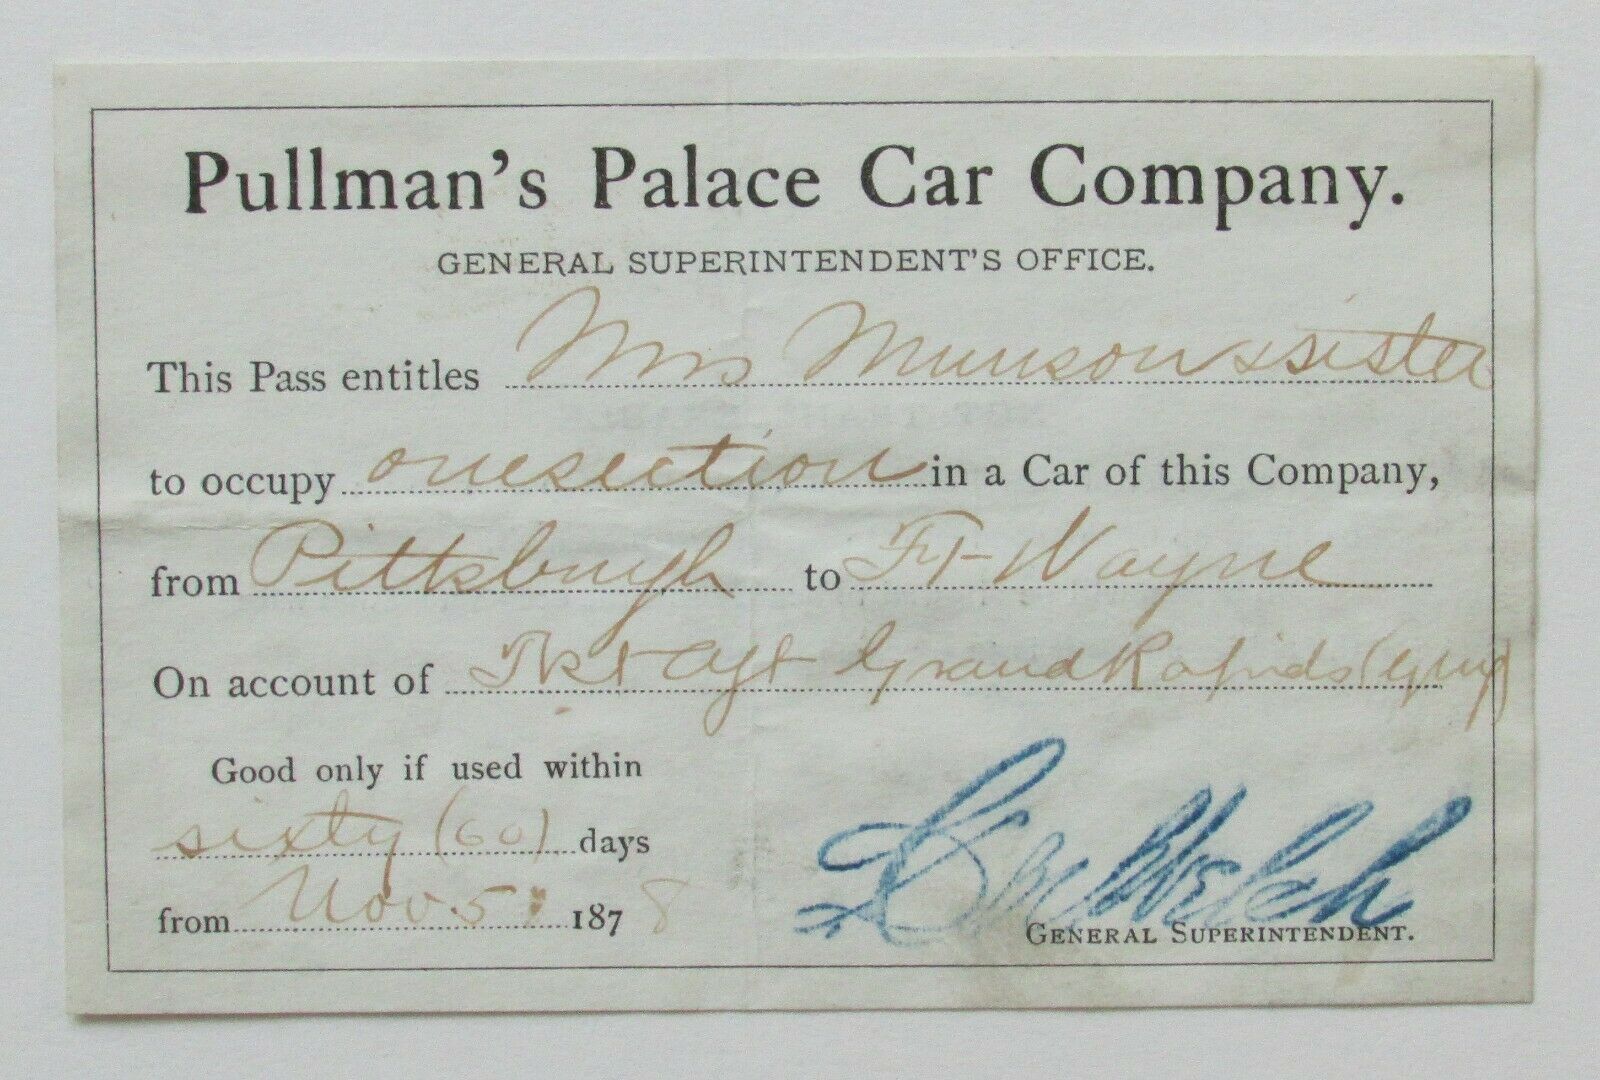 Pullman's Palace Car Company.
GENERAL SUPERINTENDENT'S OFFICE.
This Pass entitles Mrs Munson & sister
to occupy one section in a Car of this Company,
from Pittsburgh to Ft Wayne
On account of Tkt Agt Grand Rapids
Good only if used within
sixty (60) days
from Nov 5 1878
Welch
GENERAL SUPERINTENDENT.